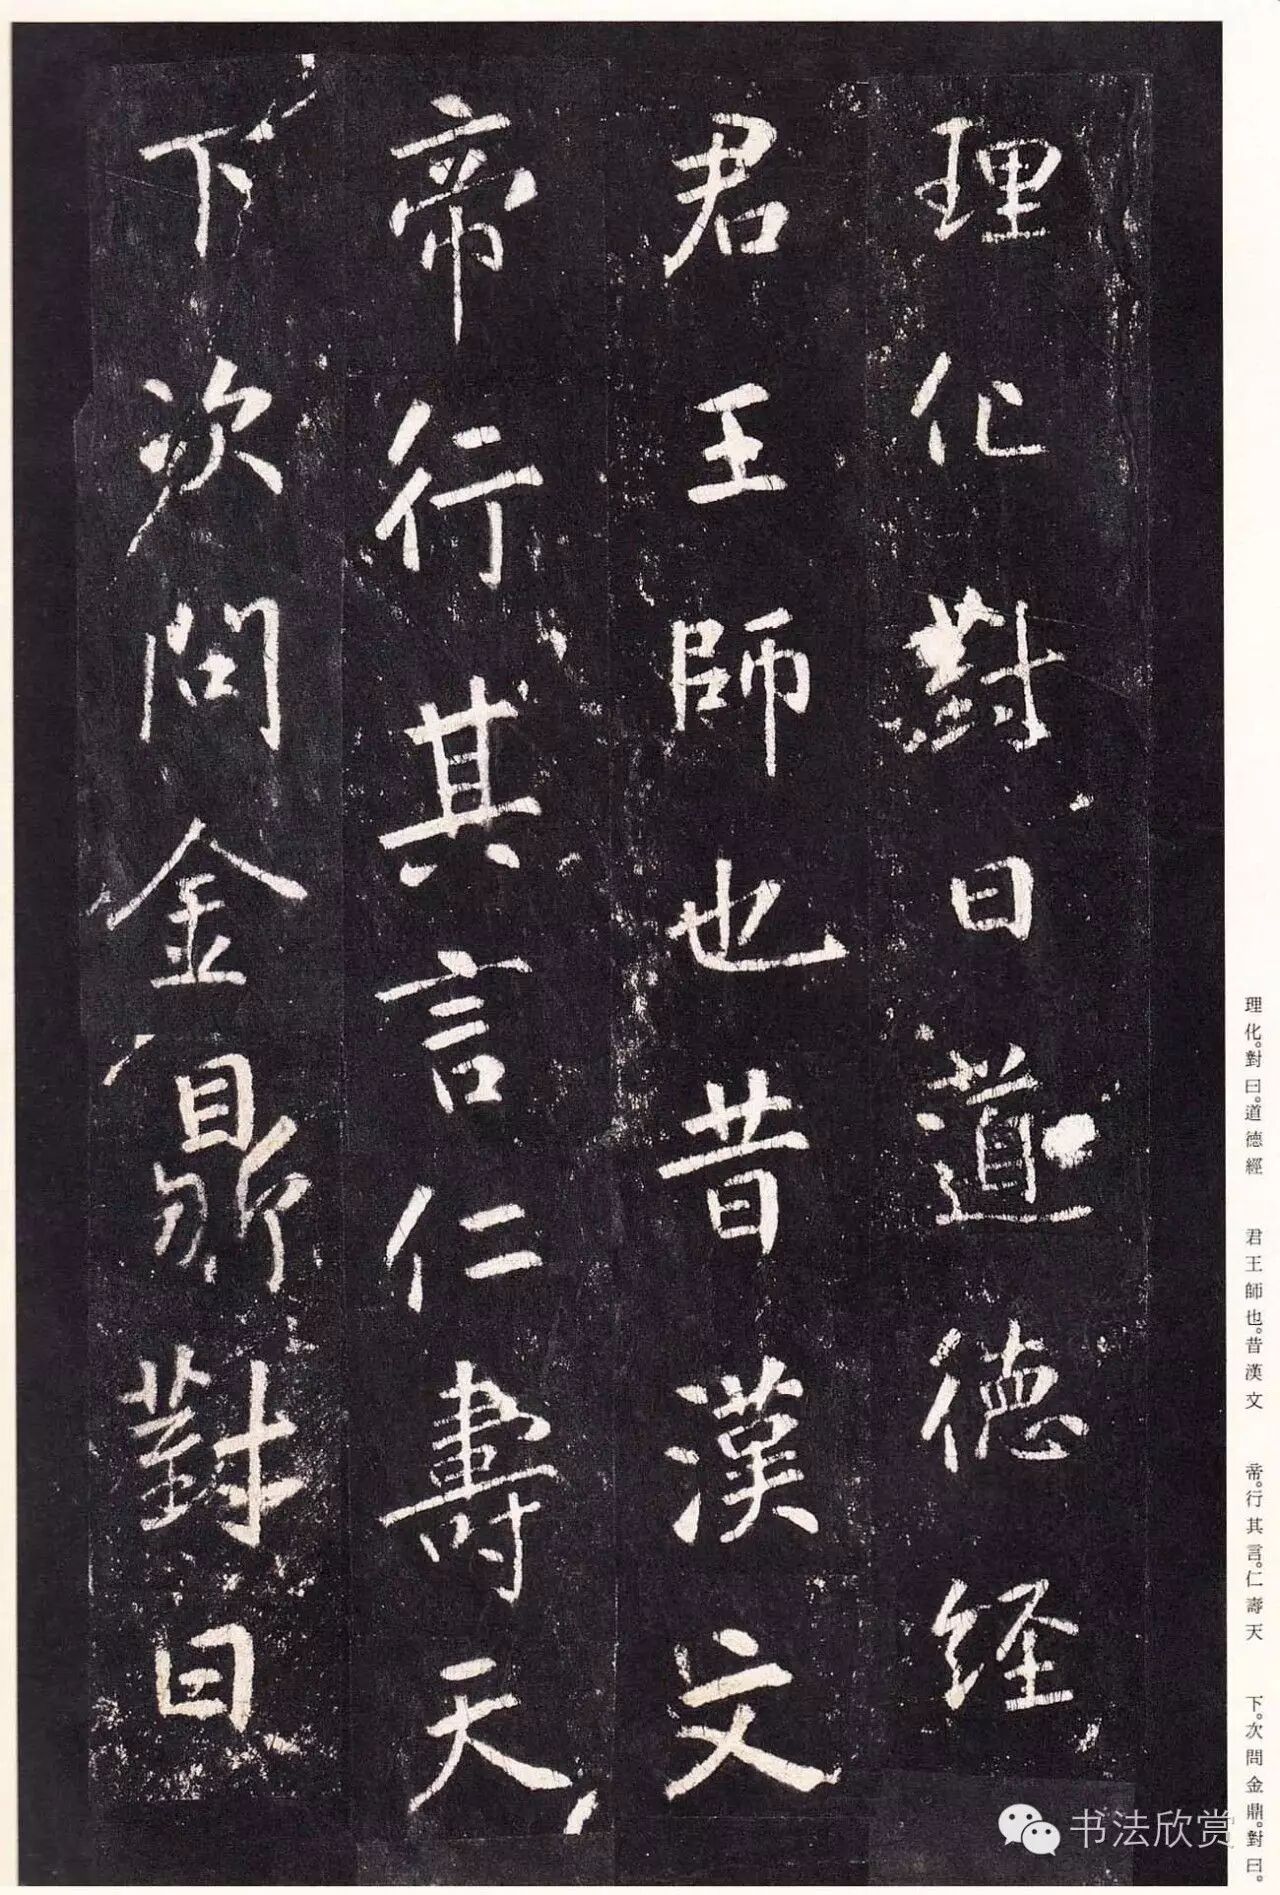 理化對曰道德經
君王師也昔漢文
帝行其言仁壽天
下次問金鼎對曰
理化。對曰。道德經　君王師也。昔漢文　帝。行其言。仁壽天　下。次問金鼎。對曰。
书法欣赏